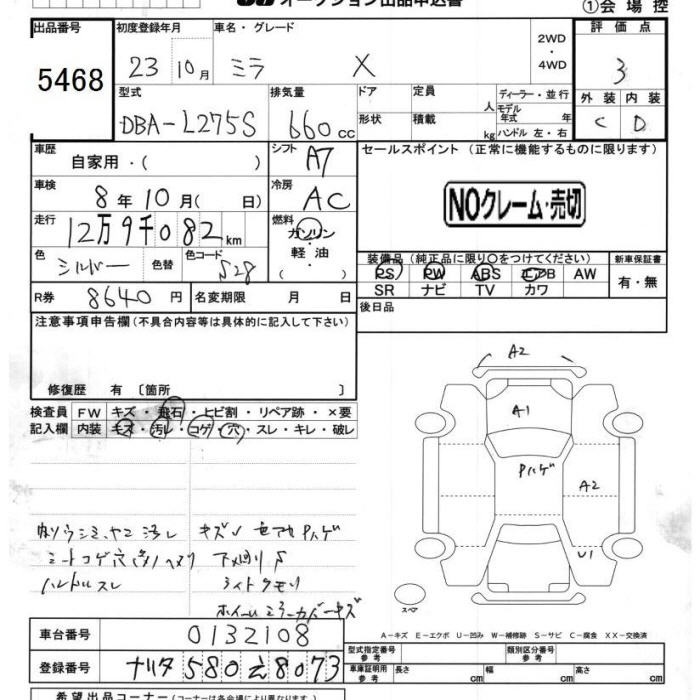 オークション出品申込書
①会場控
出品番号 5468
初度登録年月 23 10月
車名・グレード ミラ X
2WD・4WD
評価点 3
型式 DBA-L275S
排気量 660 cc
ドア
定員 人
ディーラー・並行
モデル年式 年
形状
積載 kg
ハンドル 左・右
外装 C
内装 D
車歴 自家用・( )
シフト A7
セールスポイント (正常に機能するものに限ります)
車検 8年10月( 日)
冷房 AC
NOクレーム・売切
走行 12万9千082km
燃料 ガソリン 軽油 ・( )
色 シルバー 色替
色コード S28
装備品(純正品に限り〇をつけてください)
新車保証書
PS PW ABS エアB AW
有・無
SR ナビ TV カワ
R券 8640円
名変期限 月 日
後日品
注意事項申告欄(不具合内容等は具体的に記入して下さい)
修復歴 有〔箇所 〕
検査員記入欄
FW キズ・飛石・ヒビ割・リペア跡・×要
内装 キズ・汚レ・コゲ・穴・スレ・キレ・破レ
A2
A1
Pハゲ
A2
U1
スペア
キズ Pハゲ
シートコゲ穴
ハンドルスレ ライトクモリ
ホイール ミラーカバーキズ
A-キズ E-エクボ U-凹み W-補修跡 S-サビ C-腐食 XX-交換済
車台番号 0132108
型式指定番号 参考
類別区分番号 参考
登録番号 ナリタ 580 え 8073
車庫証明用 参考
長さ cm
幅 cm
高さ cm
希望出品コーナー(コーナー名は各会場により異なります)